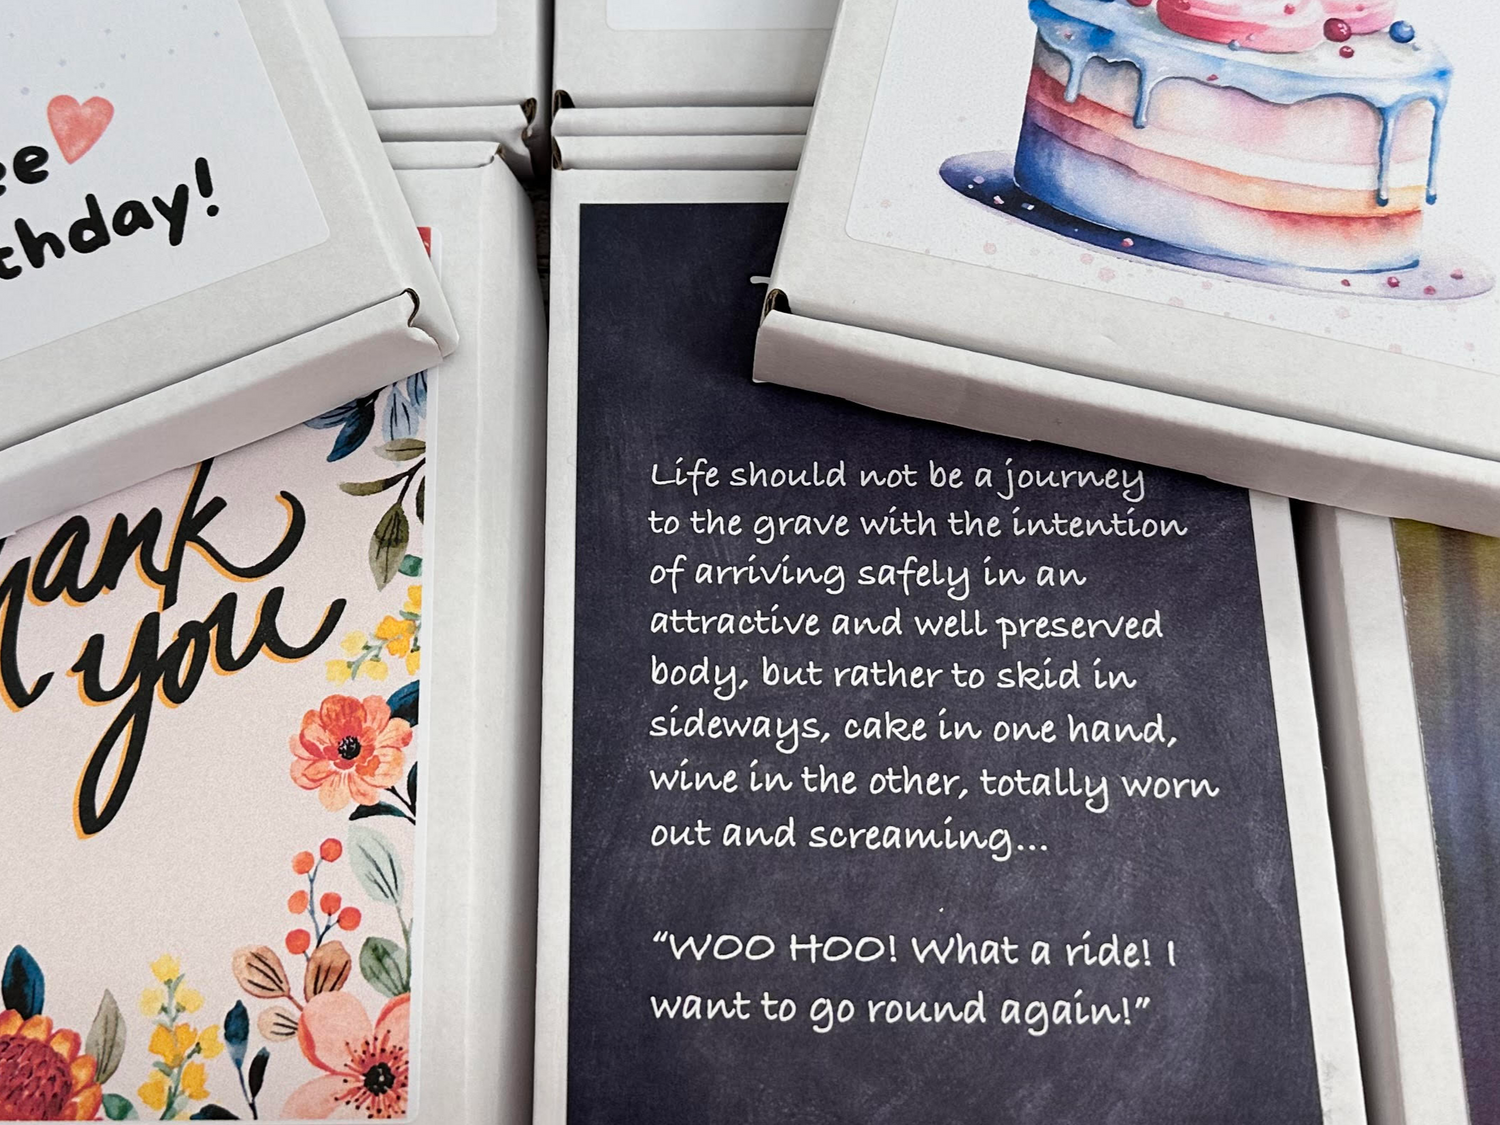 Life should not be a journey
to the grave with the intention
of arriving safely in an
attractive and well preserved
body, but rather to skid in
sideways, cake in one hand,
wine in the other, totally worn
out and screaming...
“WOO HOO! What a ride! I
want to go round again!”
you